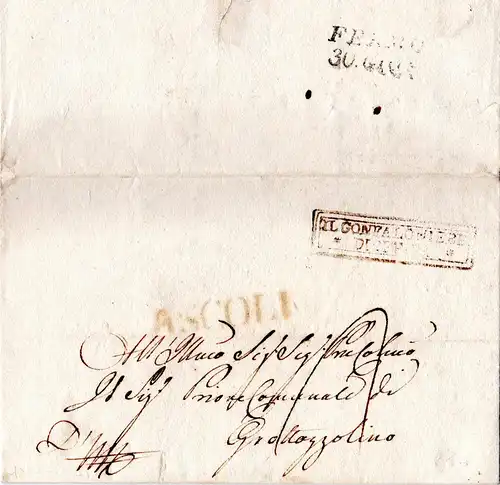 FERMO
30. GIU
IL GONFALONIERE
DI
ASCOLI
All'Illmo Sig Sig Prne Colmo
Il Sig Priore Comunale di
Grottazzolina